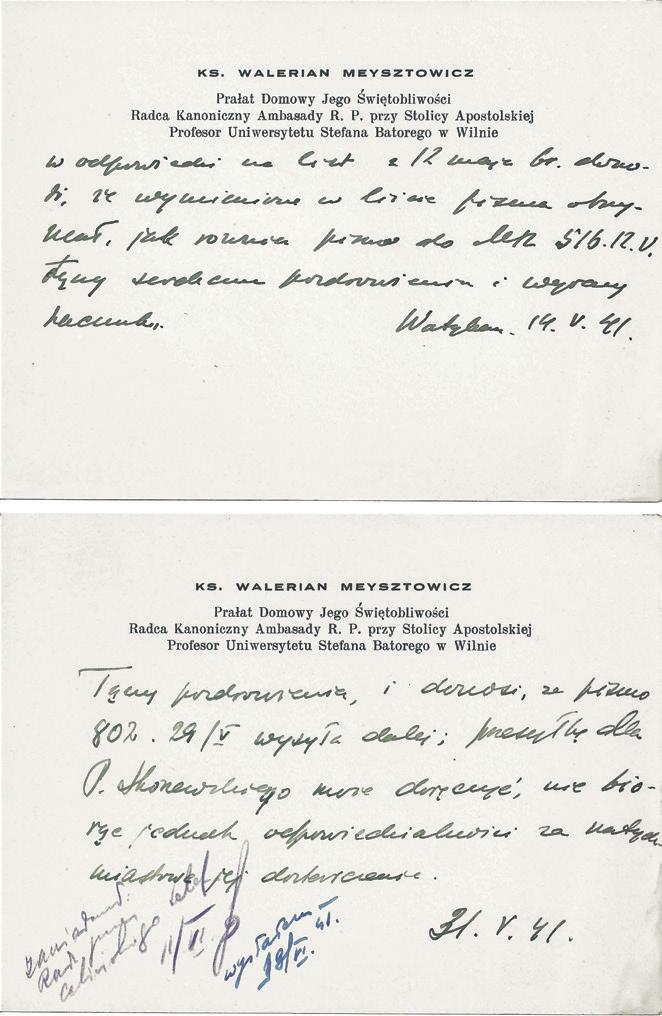 KS. WALERIAN MEYSZTOWICZ
Prałat Domowy Jego Świętobliwości
Radca Kanoniczny Ambasady R. P. przy Stolicy Apostolskiej
Profesor Uniwersytetu Stefana Batorego w Wilnie
w odpowiedzi na list z 12 maja br. dono-
si, że wymienione w liście pisma otrzy-
mał, jak również pismo do 516.12.V.
Łączy serdeczne pozdrowienia i wyrazy
szacunku. Watykan. 14. V. 41.
KS. WALERIAN MEYSZTOWICZ
Prałat Domowy Jego Świętobliwości
Radca Kanoniczny Ambasady R. P. przy Stolicy Apostolskiej
Profesor Uniwersytetu Stefana Batorego w Wilnie
Łączy pozdrowienia, i donosi, że pismo
802. 29/V wysyła dalej; przesyłkę dla
P. Skonewskiego może doręczyć, nie bio-
rąc jednak odpowiedzialności za natych
miastowe jej dostarczenie.
31. V. 41.
zawiadom.
11/VI
wysłałem
18/VI. 41.